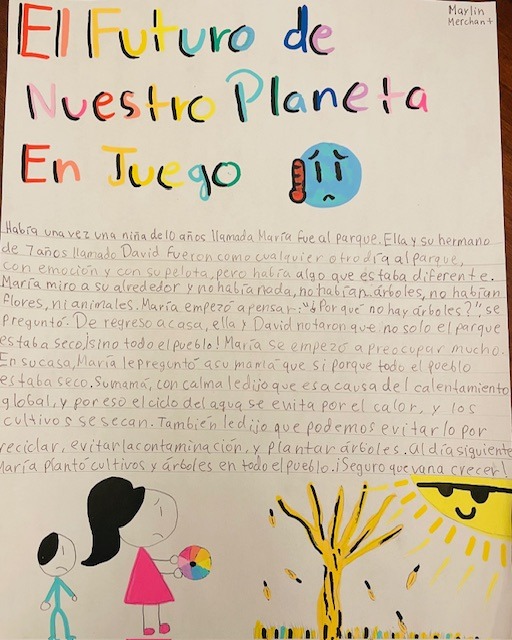 El Futuro de
Nuestro Planeta
En Juego
Maylin
Merchant
Había una vez una niña de 10 años llamada María fue al parque. Ella y su hermano
de 7 años llamado David fueron como cualquier otro día al parque,
con emoción y con su pelota, pero había algo que estaba diferente.
María miro a su alrededor y no había nada, no habían árboles, no habían
flores, ni animales. María empezó a pensar: "¿Por qué no hay árboles?", se
preguntó. De regreso a casa, ella y David notaron que no solo el parque
estaba seco, ¡sino todo el pueblo! María se empezó a preocupar mucho.
En su casa, María le preguntó a su mamá que si porque todo el pueblo
estaba seco. Su mamá, con calma le dijo que es a causa del calentamiento
global, y por eso el ciclo del agua se evita por el calor, y los
cultivos se secan. También le dijo que podemos evitarlo por
reciclar, evitar la contaminación, y plantar árboles. Al día siguiente
María plantó cultivos y árboles en todo el pueblo. ¡Seguro que van a crecer!